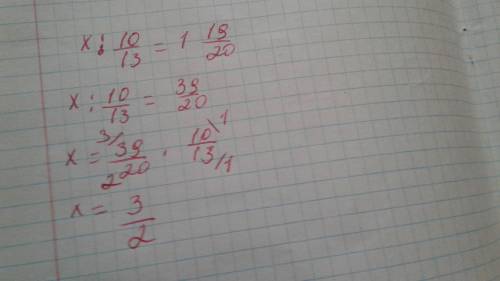 x : 10/13 = 1 19/20
x : 10/13 = 39/20
x = 39/20 · 10/13 3 2 1 1
x = 3/2